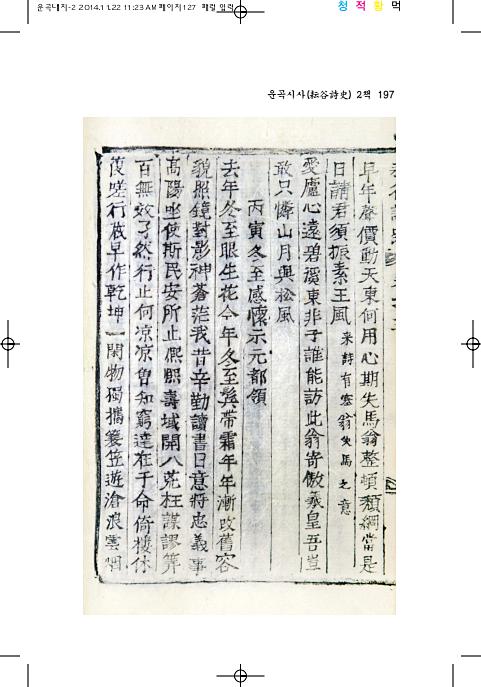 운곡대지-2 2014.11.22 11:23 AM 페이지197
청 적 황 먹
운곡시사(耘谷詩史) 2책 197
早年聲價動天東何用心期失馬翁整頓頹綱當是
日請君須振素王風 來詩有塞翁失馬之意
愛廬心遠碧溪東非子誰能訪此翁寄傲羲皇吾豈
敢只憐山月與松風
丙寅冬至感懷示元都領
去年冬至眼生花今年冬至鬢帶霜年年漸改舊容
貌照鏡對影神蒼茫我昔辛勤讀書日意將忠義事
高陽坐使斯民安所止熙熙壽域開八荒枉謀謬算
百無效了然行止何凉凉曾知窮達在于命倚樓休
復嗟行放早作乾坤一閑物獨攜簑笠遊滄浪雲烟